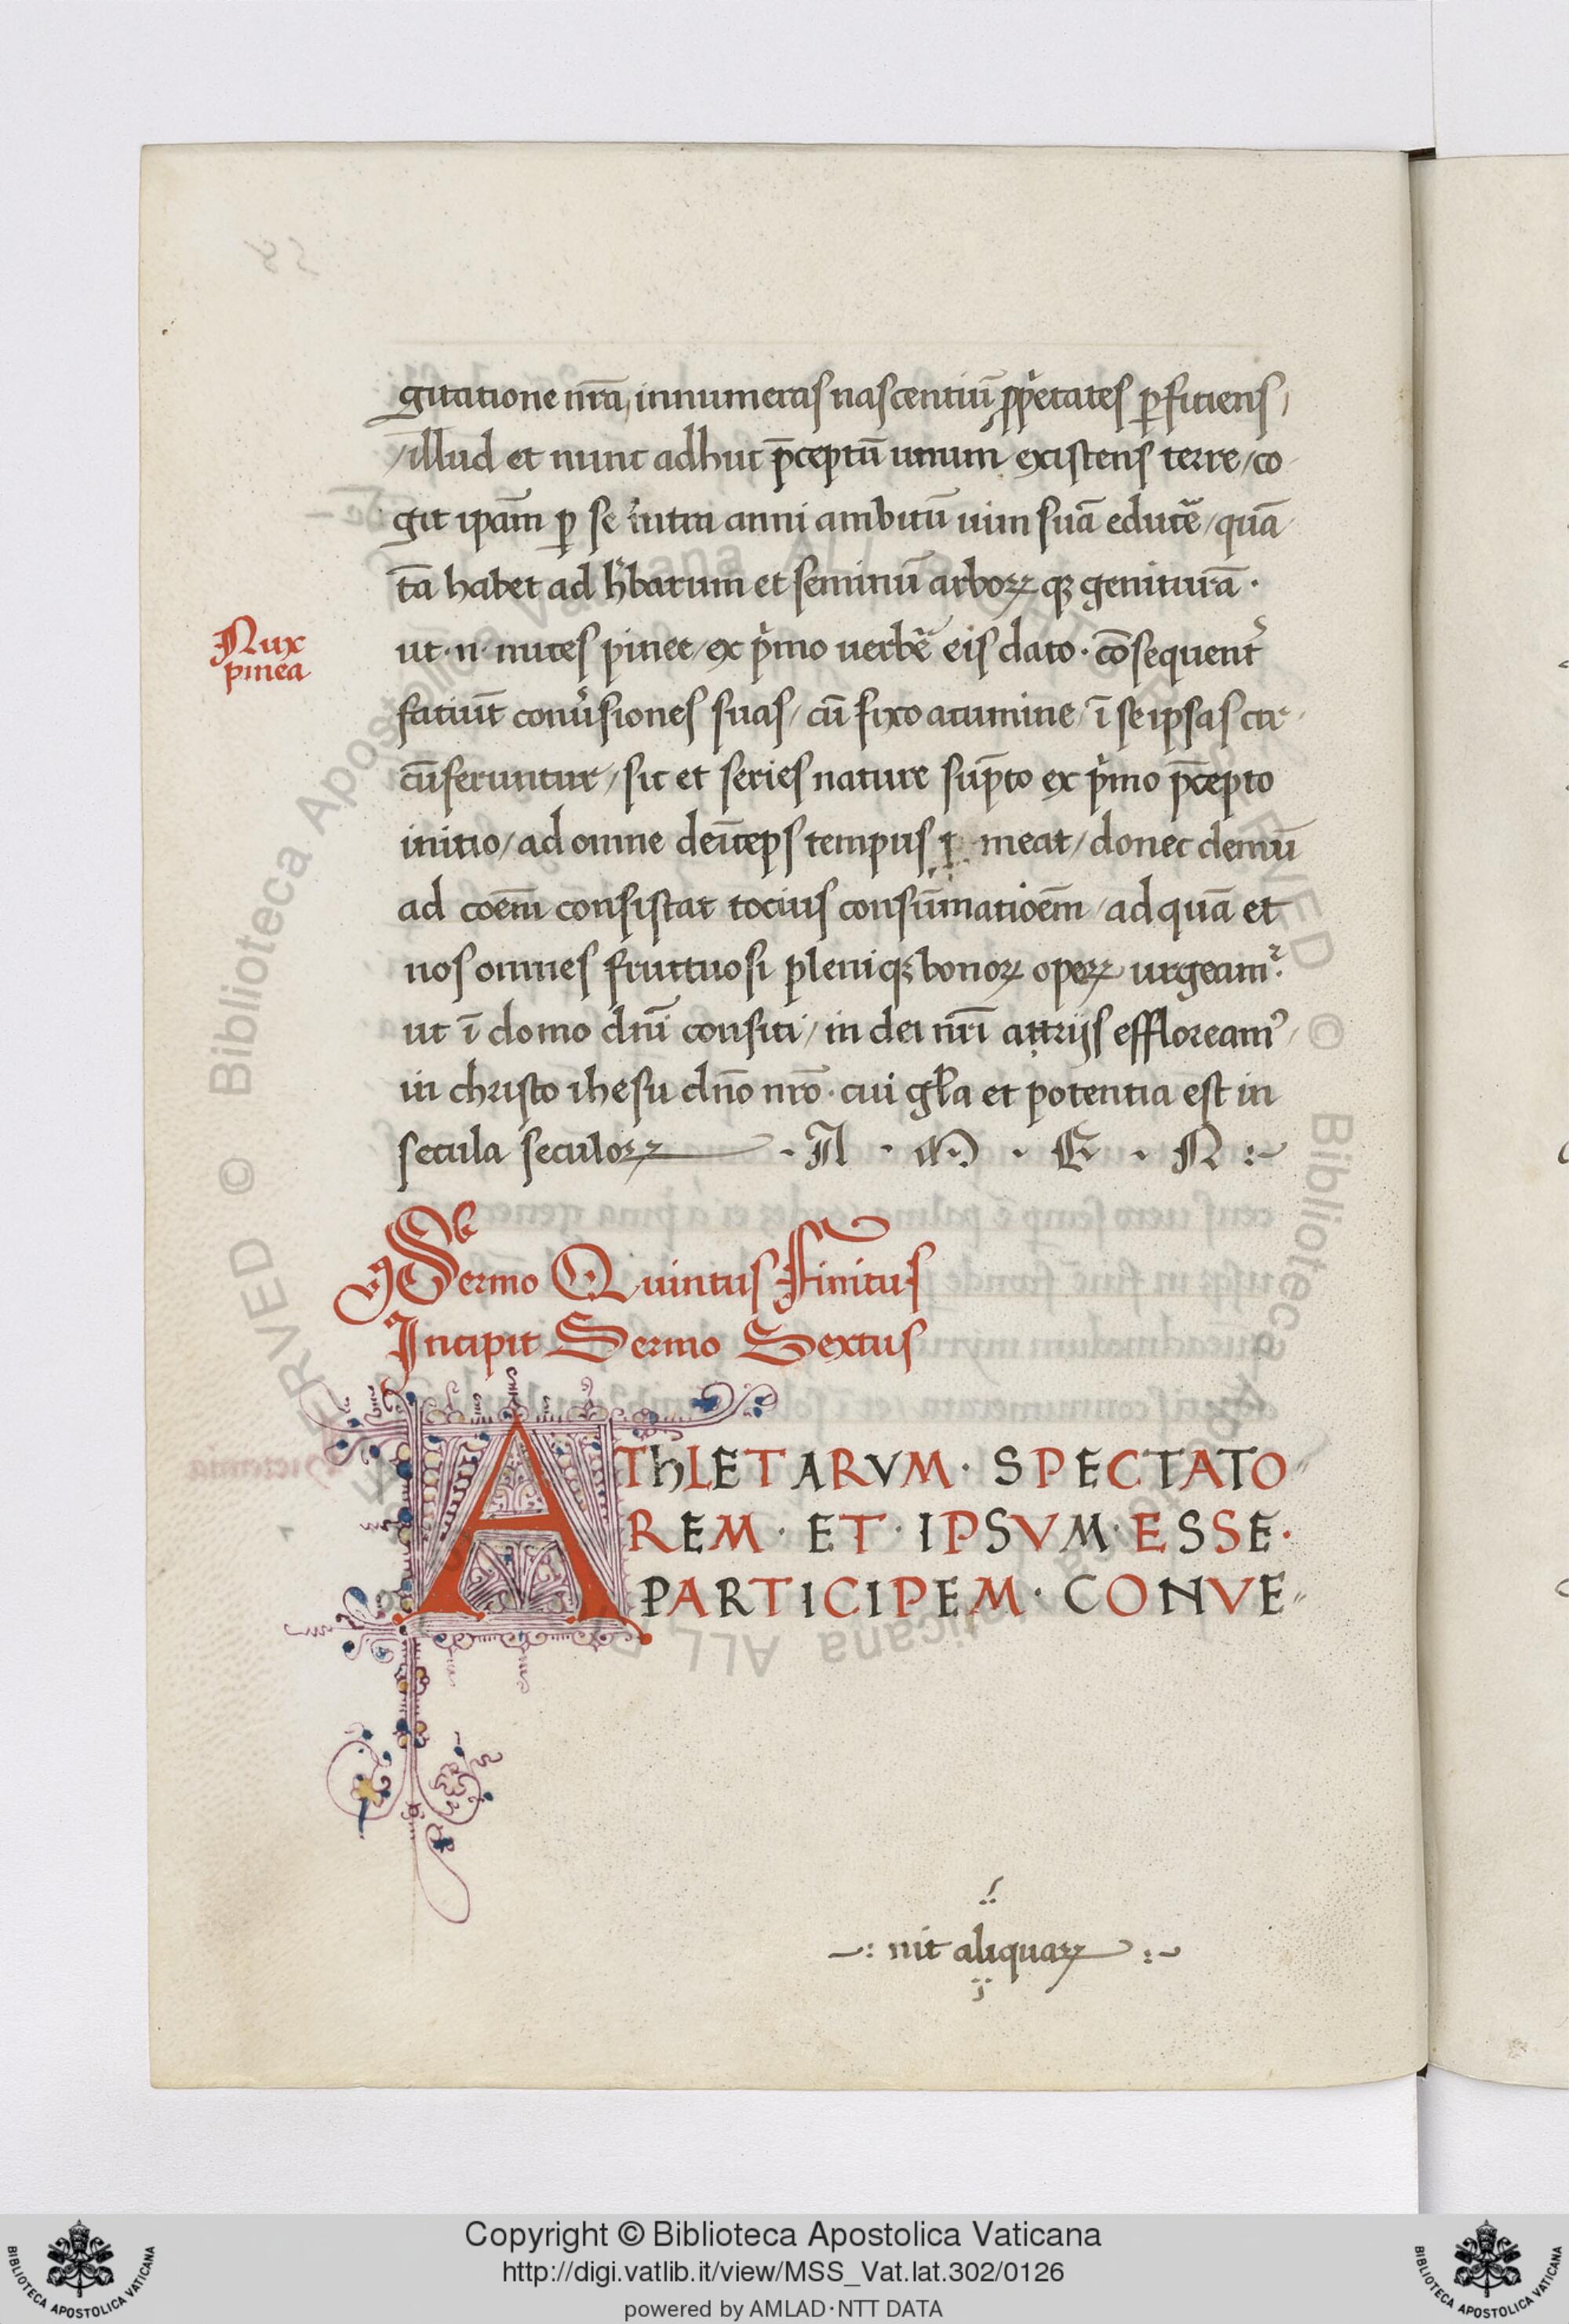 gitatione nr̄a, innumeras nascentiū ꝓp̓etates ꝑficiens,
/illud et nunc adhuc p̄ceptū unum existens terre/co
git ip̄am ꝑ se anni ambitū uim suā educe᷑/quā
tā habet ad h̓barum et seminū arboꝝ qꝫ genituᷓā ·
Nux
pinea
ut · n · nuces pinee/ex p̓mo eis dato · cōsequent᷑
faciūt conu̓siones suas/cū fixo acumine/ī se ipsas cir
cūferuntur/sic et series nature sūpto ex p̓mo p̄cepto
initio/ad omne deīceps tempus ꝑ meat/donec demū
ad coēm consistat tocius consūmatioēm/ad quā et
nos omnes fructuosi pleniqꝫ bonoꝝ opeꝝ urgeam᷑.
ut ī domo dn̄i consiti/in dei nr̄i attrijs effloreamꝰ/
in christo ihesu dn̄o nr̄o · cui gl̄a et potentia est in
secula seculoꝝ · A · M · E · N :~
Sermo Quintus Finitus
Incipit Sermo Sextus
AThLETARVM · SPECTATO
REM · ET · IPSVM · ESSE ·
PARTICIPEM · CONVE
~: nit aliquaꝝ :~
Copyright © Biblioteca Apostolica Vaticana
http://digi.vatlib.it/view/MSS_Vat.lat.302/0126
powered by AMLAD·NTT DATA
BIBLIOTECA APOSTOLICA VATICANA
BIBLIOTECA APOSTOLICA VATICANA